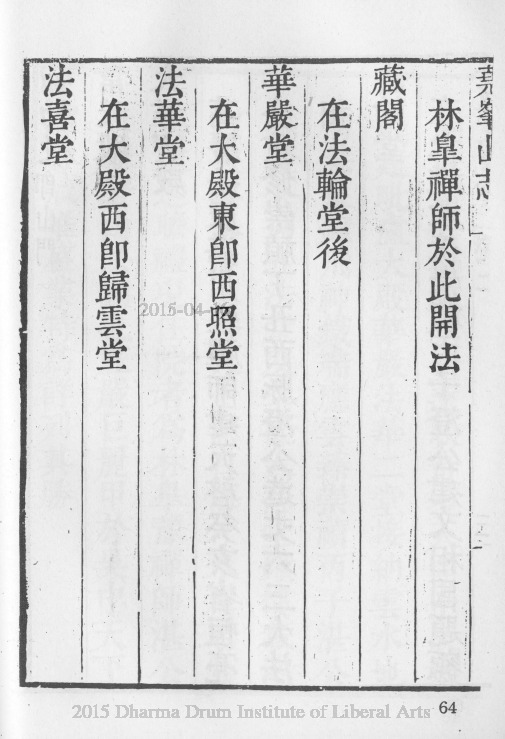 堯峯山志
林臯禪師於此開法
藏閣
在法輪堂後
華嚴堂
在大殿東卽西照堂
法華堂
在大殿西卽歸雲堂
法喜堂
64
2015 Dharma Drum Institute of Liberal Arts